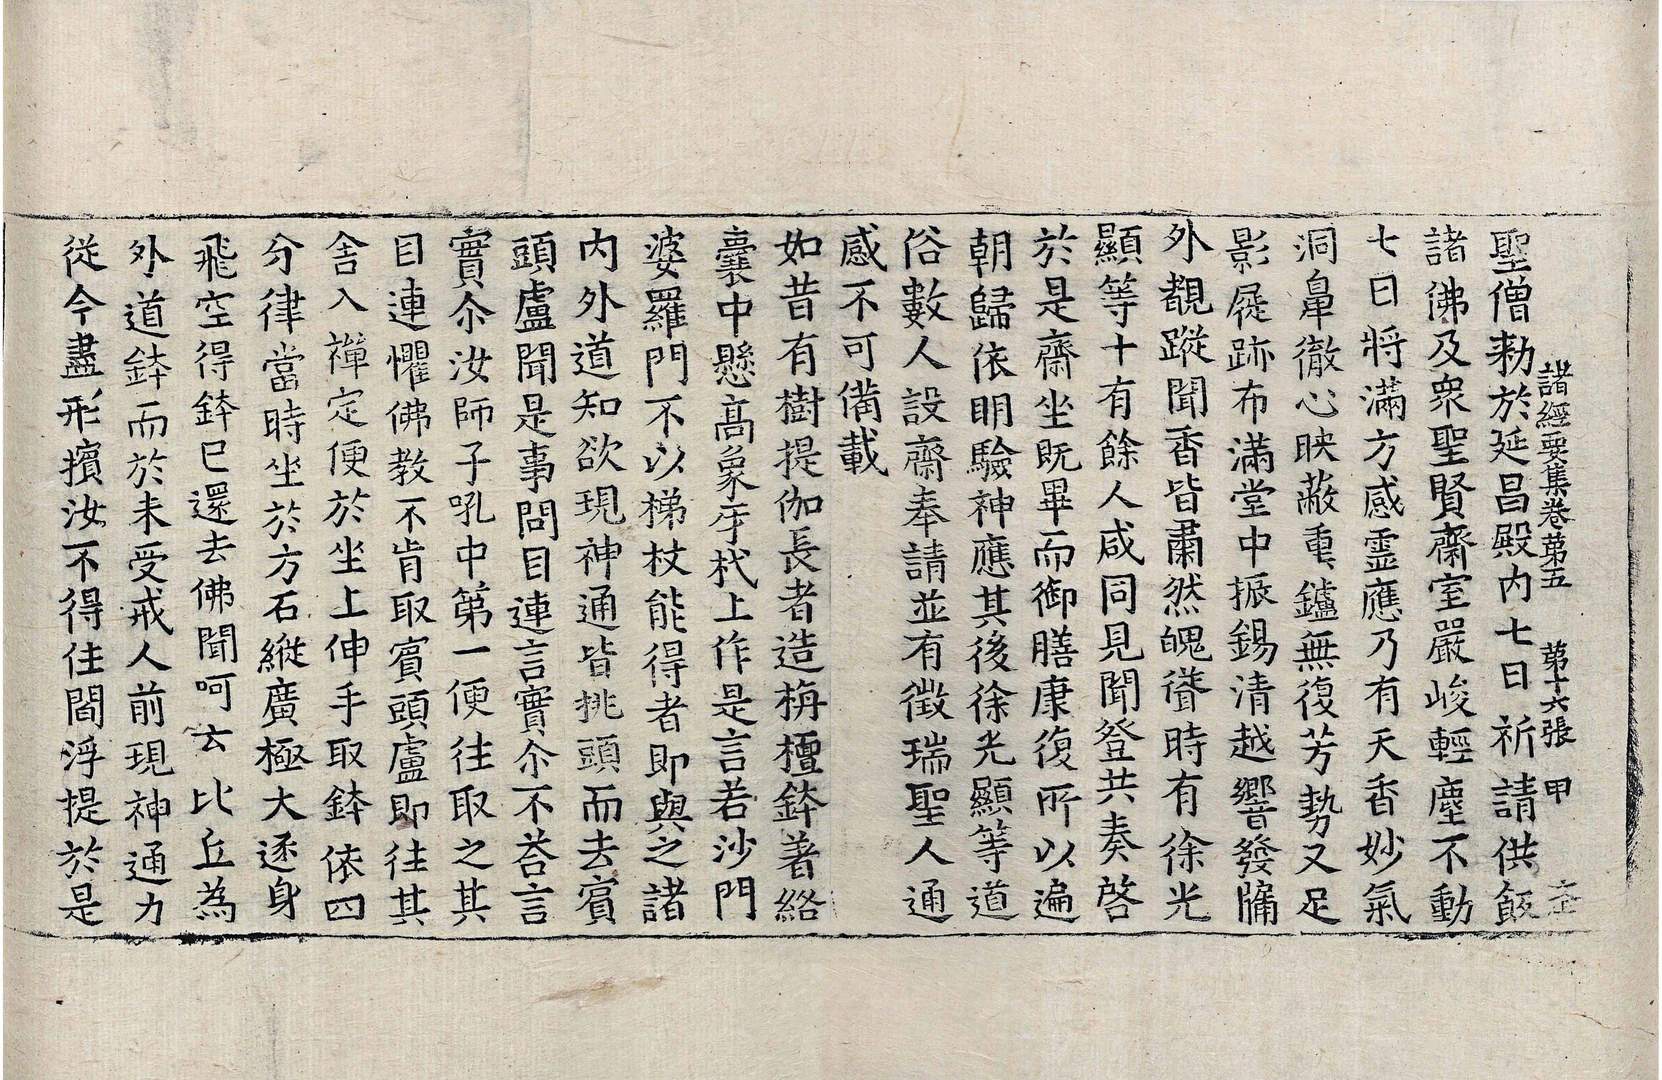 諸經要集卷第五 第十六張 甲
聖僧勑於延昌殿内七日祈請供飯
諸佛及衆聖賢齋室嚴峻輕塵不動
七日將滿方感靈應乃有天香妙氣
洞鼻徹心映蔽重鑪無復芳勢又足
影屣跡布滿堂中振錫清越響發牖
外覩蹤聞香皆肅然魄聳時有徐光
顯等十有餘人咸同見聞登共奏啓
於是齋坐既畢而御膳康復所以遍
朝歸依明驗神應其後徐光顯等道
俗數人設齋奉請並有徵瑞聖人通
感不可備載
如昔有樹提伽長者造栴檀鉢著絡
囊中懸高象牙杙上作是言若沙門
婆羅門不以梯杖能得者即與之諸
内外道知欲現神通皆挑頭而去賓
頭盧聞是事問目連言實尒不荅言
實尒汝師子吼中第一便往取之其
目連懼佛教不肯取賓頭盧即往其
舍入禪定便於坐上伸手取鉢依四
分律當時坐於方石縱廣極大逐身
飛空得鉢已還去佛聞呵云比丘為
外道鉢而於未受戒人前現神通力
從今盡形擯汝不得住閻浮提於是